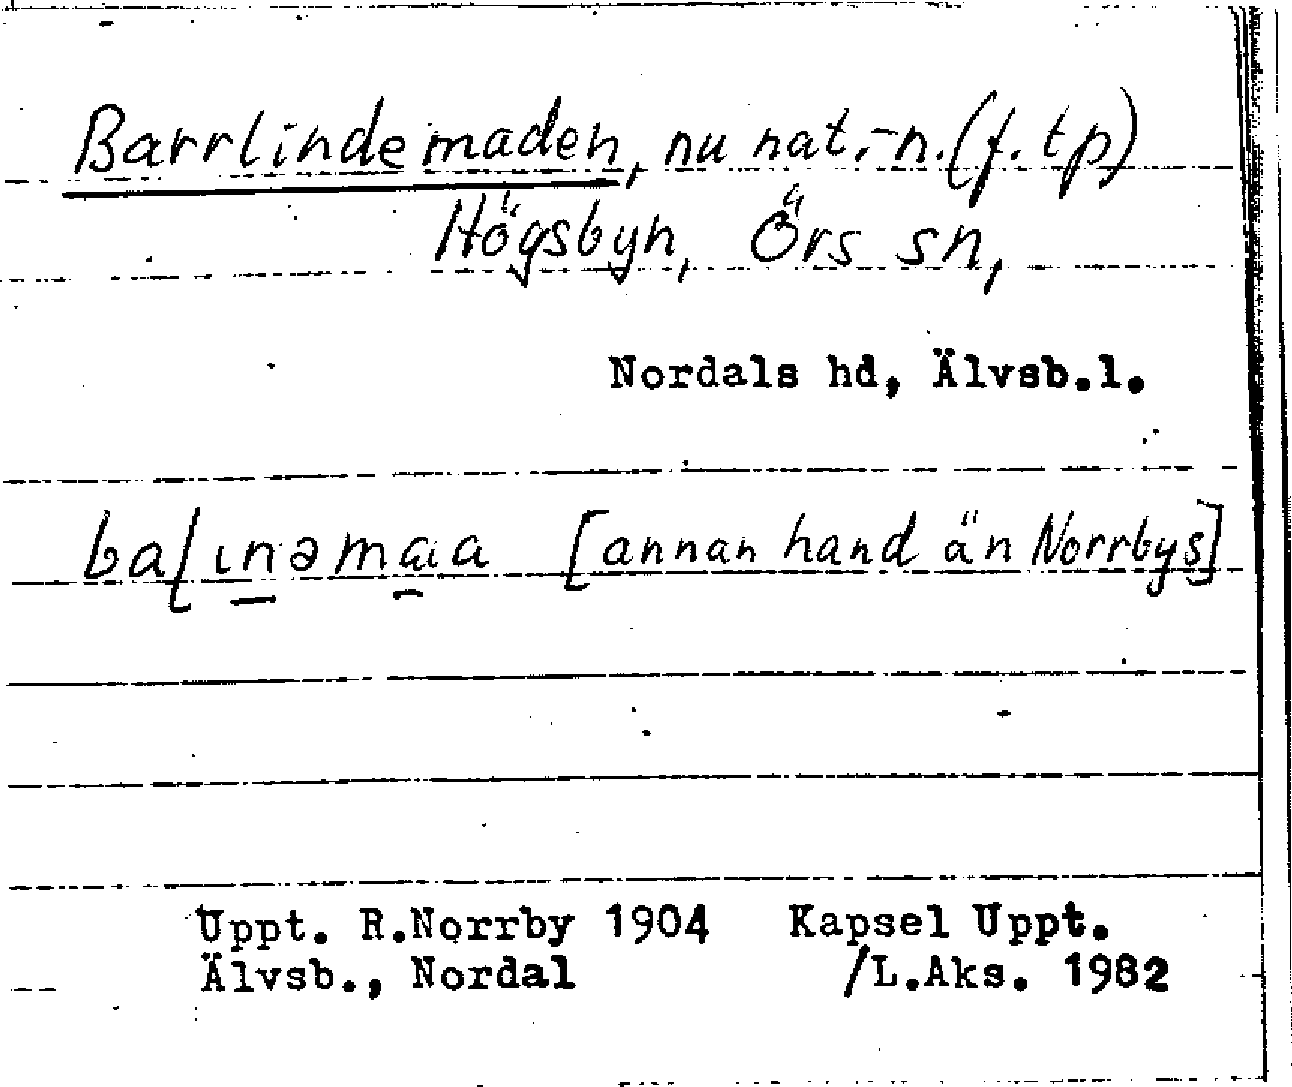 Barrlindemaden, nu nat.-n. (f. tp)
Högsbyn, Örs sn,
Nordals hd, Älvsb.l.
[annan hand än Norrbys]
Uppt. R.Norrby 1904 Kapsel Uppt.
Älvsb., Nordal /L.Aks. 1982